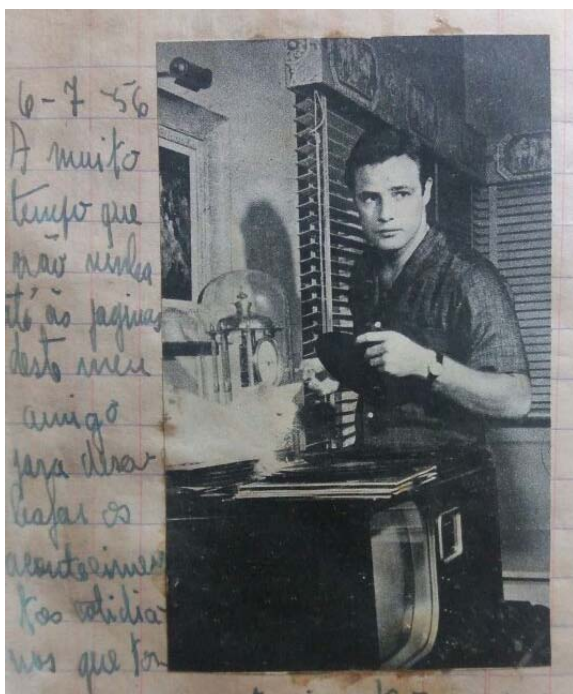 6-7-56
A muito
tempo que
não vinha
até às paginas
deste meu
amigo
para desa-
bafar os
acontecimen
tos cotidia-
nos que